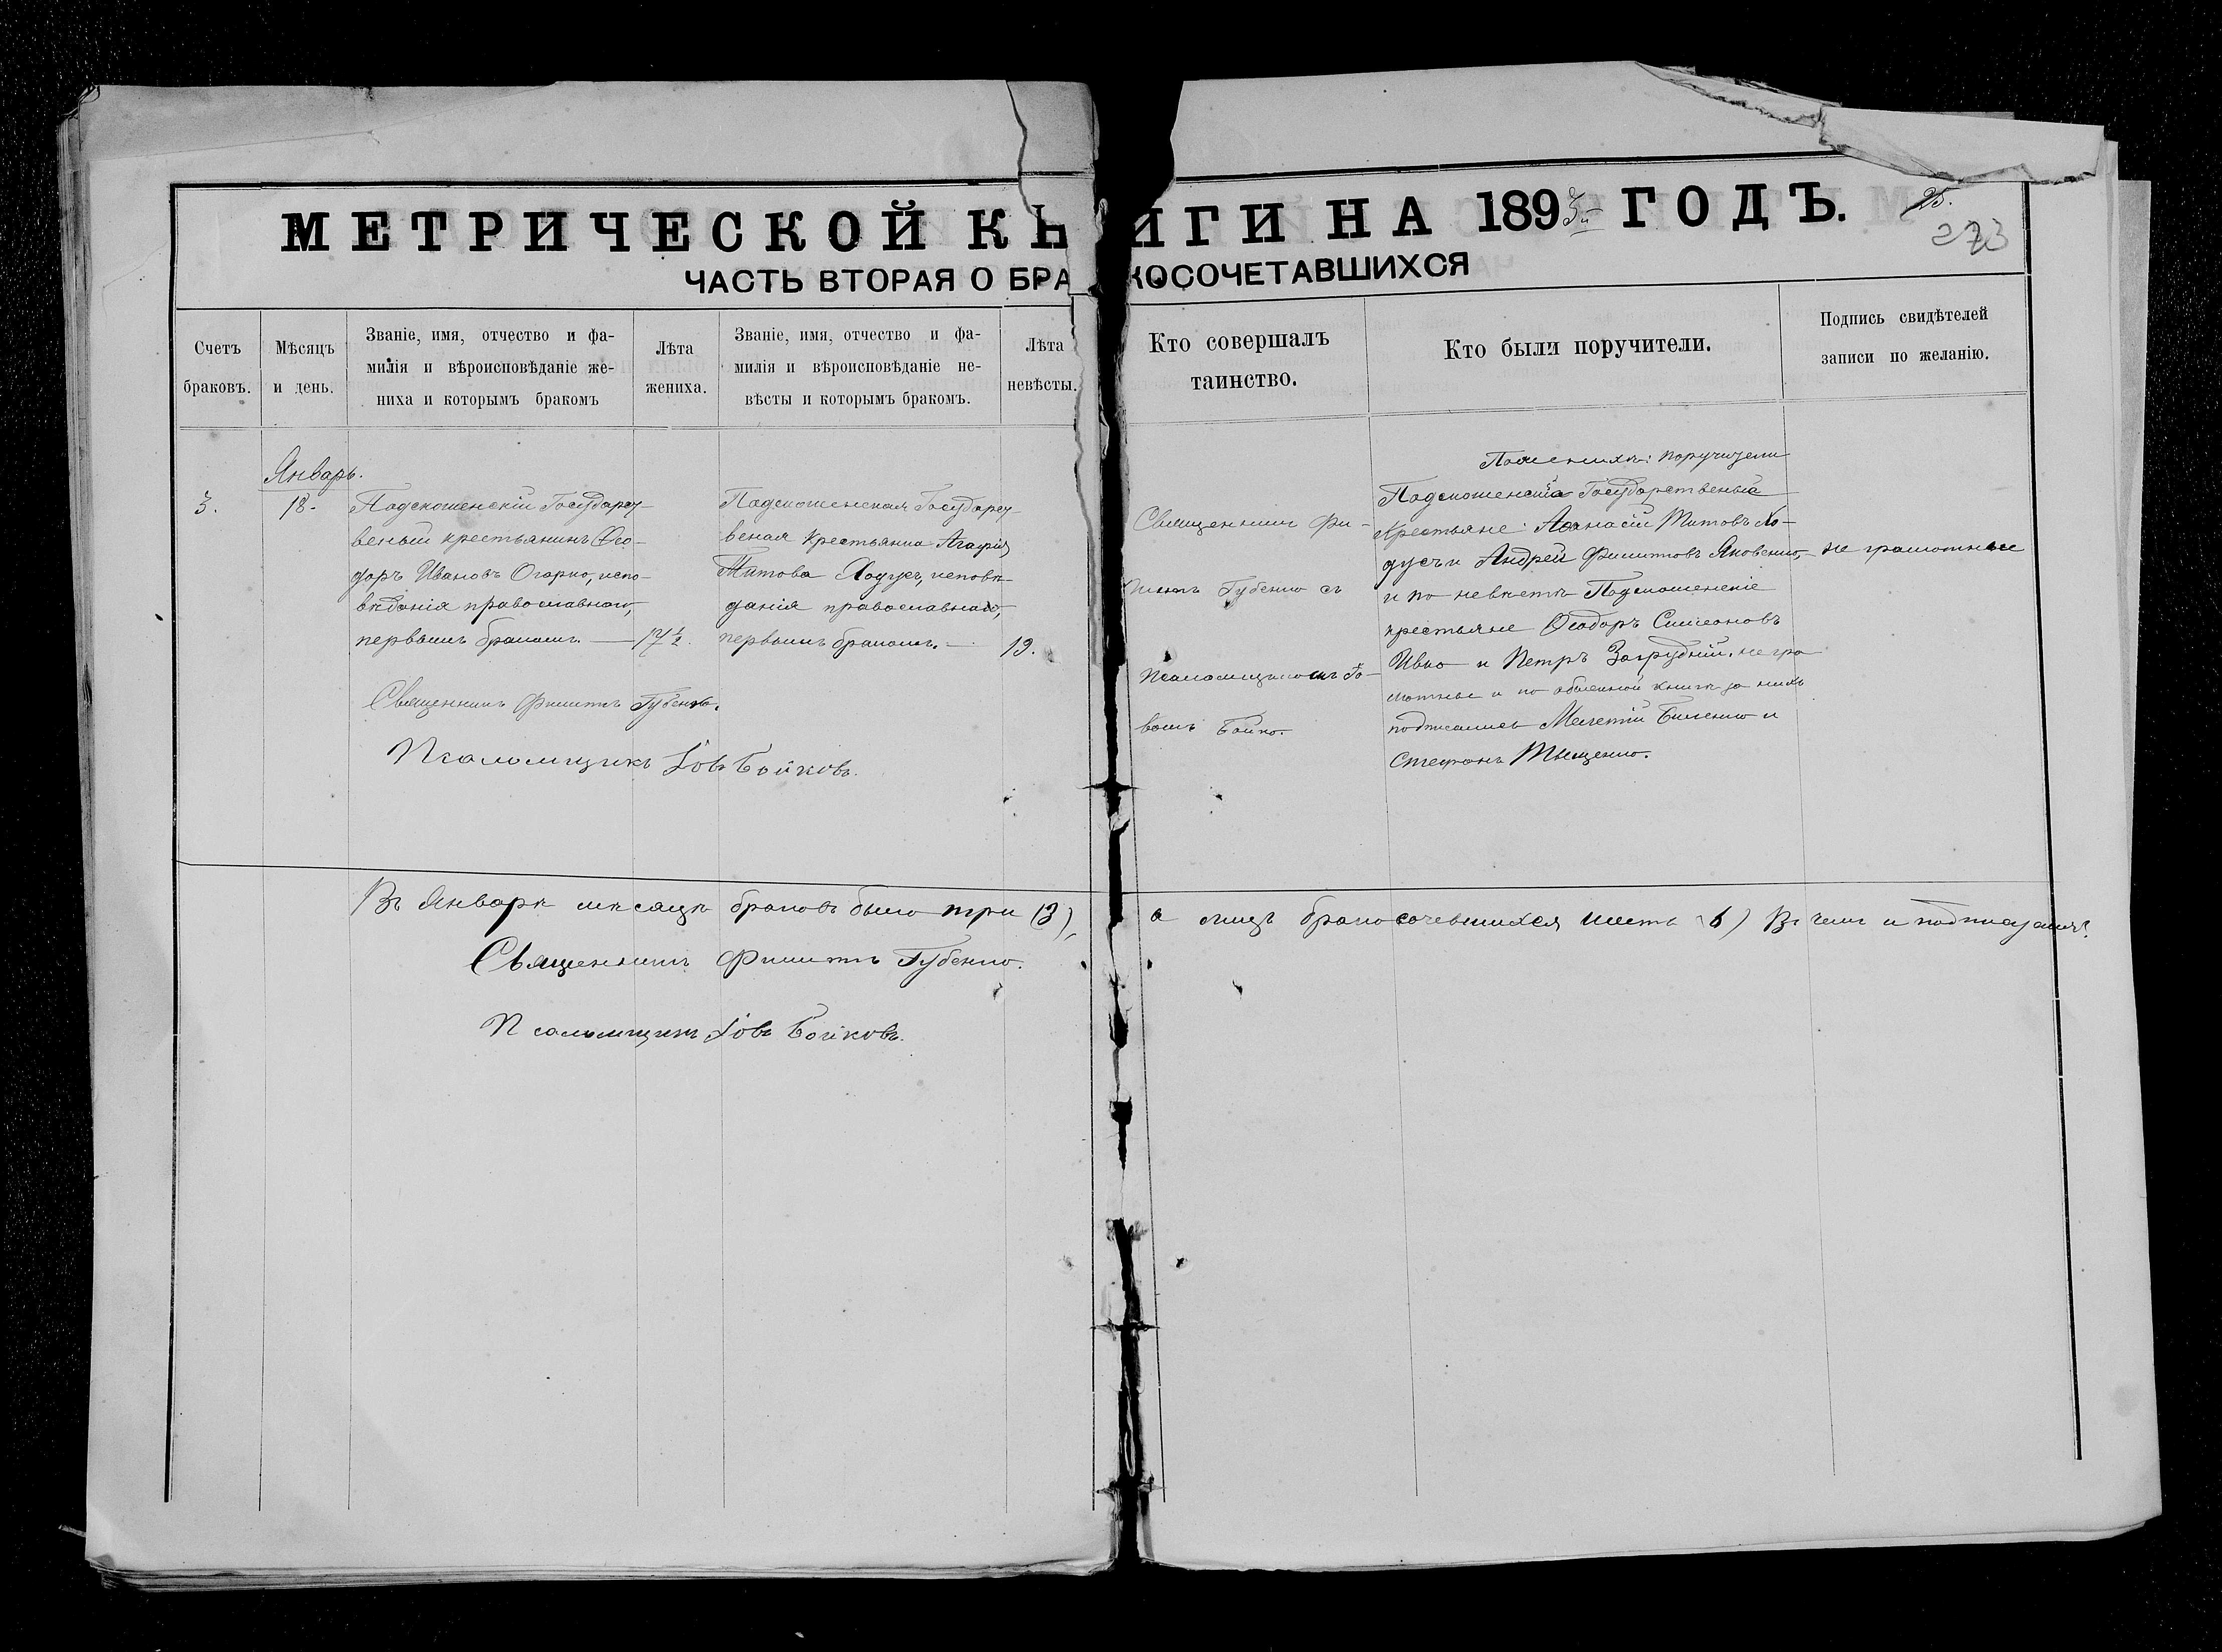 МЕТРИЧЕСКОЙ КНИГИ НА 1893й ГОДЪ.
25.
273
ЧАСТЬ ВТОРАЯ О БРАКОСОЧЕТАВШИХСЯ
Счетъ браковъ.
Мѣсяцъ и день.
Званіе, имя, отчество и фа-
милія и вѣроисповѣданіе же-
ниха и которымъ бракомъ
Лѣта жениха.
Званіе, имя, отчество и фа-
милія и вѣроисповѣданіе не-
вѣсты и которымъ бракомъ.
Лѣта невѣсты.
Кто совершалъ
таинство.
Кто были поручители.
Подпись свидѣтелей
записи по желанію.
3.
Январь.
18.
Государст-
веный крестьянинъ Ѳео-
доръ Ивановъ Огарко, испо-
вѣданія православнаго,
первымъ бракомъ.
17½.
Государст-
веная крестьянка Агафія
Титова Ходусъ, исповѣ-
данія православнаго,
первымъ бракомъ.
19.
Священникъ Фи-
липпъ Губенко съ
псаломщикомъ Іо-
вомъ Бойко.
По женихѣ: поручители
Государственые
крестьяне: Аѳанасій Титовъ Хо-
дусъ и Андрей Филиповъ Яковенко,
и по невѣстѣ
крестьяне Ѳеодоръ Симеоновъ
Ивко и Петръ Загрудній. негра
мотные и по обыскной книгѣ за нихъ
подписались Мелетій Биленко и
Стефанъ Тыщенко.
не грамотные
Священникъ Филиппъ Губенко.
Псаломщикъ Іовъ Бойковъ.
Въ Январѣ мѣсяцѣ браковъ было три (3), а лицъ бракосочевшихся шесть (6) Въ чемъ и подписуемся:
Священникъ Филиппъ Губенко.
Псаломщикъ Іовъ Бойковъ.